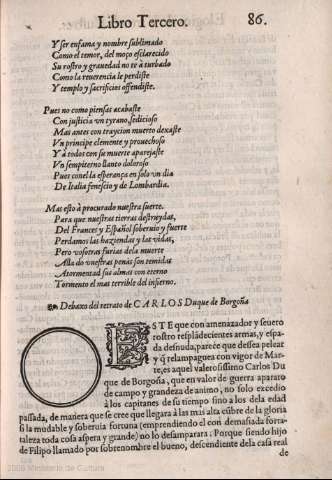 Libro Tercero. 86.
Y ser enfama y nombre sublimado
Como el temor, del moço esclarecido
Su rostro y grauedad no te à turbado
Como la reuerencia le perdiste
Y templo y sacrificios offendiste.
Pues no como piensas acabaste
Con justicia vn tyrano, sedicioso
Mas antes con traycion muerto dexaste
Vn principe clemente y prouechoso
Y à todos con su muerte aparejaste
Vn sempiterno llanto doloroso
Pues conel la esperança en solo vn dia
De Italia fenescio y de Lombardia.
Mas esto à procurado nuestra suerte.
Para que nuestras tierras destruydas,
Del Frances y Español soberuio y fuerte
Perdamos las haziendas y las vidas,
Pero vosotras furias dela muerte
Alla do vuestras penas son temidas
Atormentad sus almas con eterno
Tormento el mas terrible del infierno.
Debaxo del retrato de CARLOS Duque de Borgoña
ESTE que con amenazador y seuero
rostro resplãdecientes armas, y espa
da desnuda, parece que dessea pelear
y q̃ relampaguea con vigor de Mar-
te, es aquel valerosissimo Carlos Du
que de Borgoña, que en valor de guerra aparato
de campo y grandeza de animo, no solo excedio
à los capitanes de su tiempo sino a los dela edad
passada, de manera que se cree que llegara à las mas alta cũbre de la gloria
si la mudable y soberuia fortuna (emprendiendo el con demasiada forta
taleza toda cosa aspera y grande) no lo desamparara: Porque siendo hijo
de Filipo llamado por sobrenombre el bueno, descendiente dela casa real
de
2008 Ministerio de Cultura